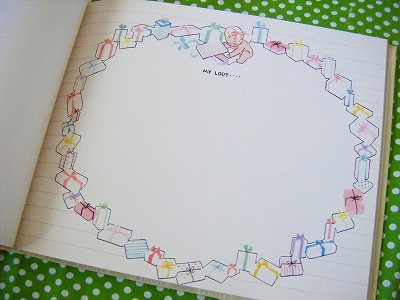 MY LOOT....